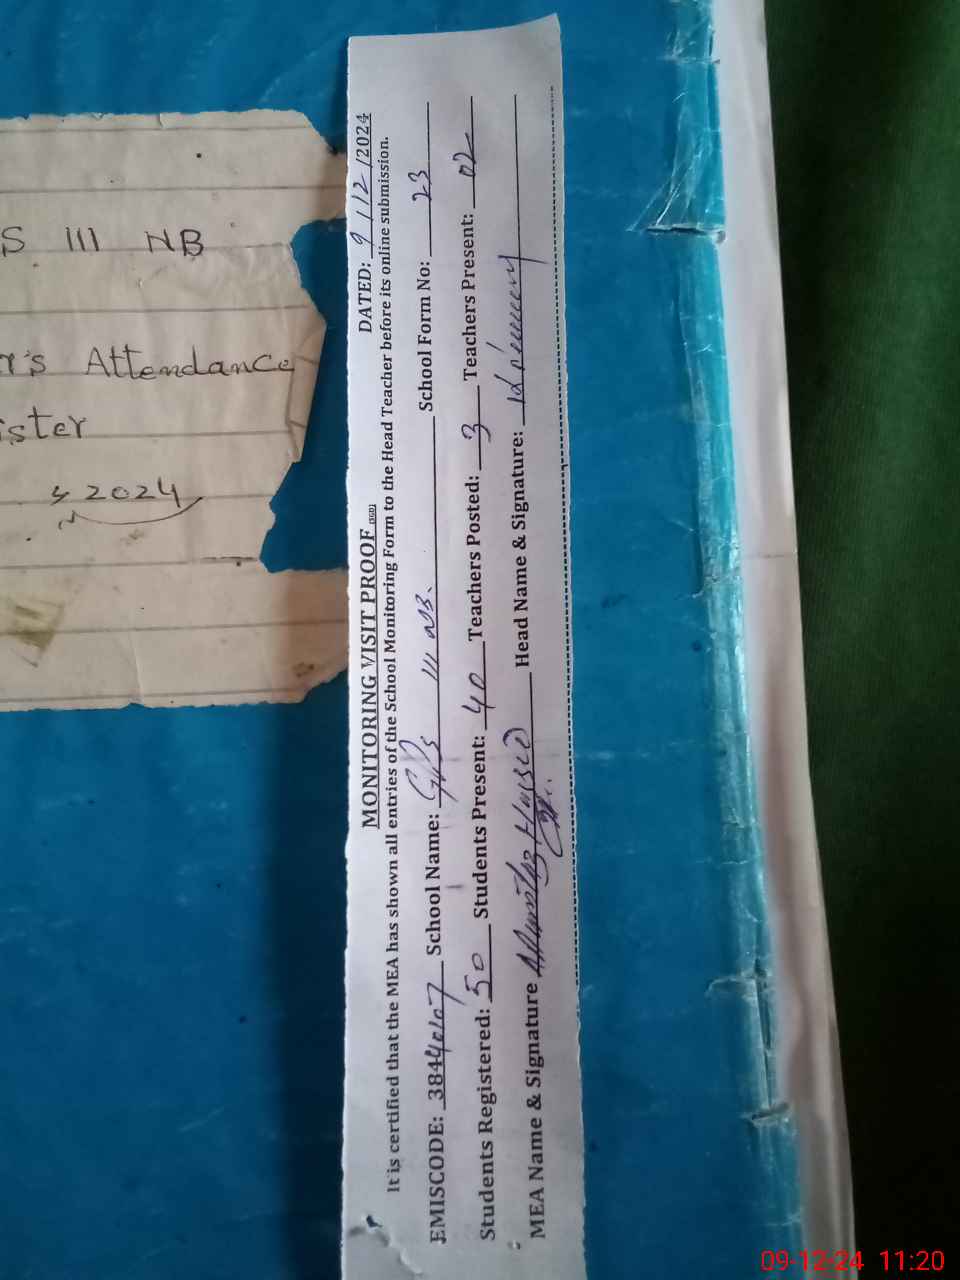 S 111 NB
r's Attendance
ister
2024
MONITORING VISIT PROOF (SGD)
DATED: 9/12/2024
It is certified that the MEA has shown all entries of the School Monitoring Form to the Head Teacher before its online submission.
EMISCODE: 38440107 School Name: GPS 111 NB. School Form No: 23
Students Registered: 50 Students Present: 40 Teachers Posted: 3 Teachers Present: 02
MEA Name & Signature Mumtaz Head Name & Signature:
09-12-24 11:20